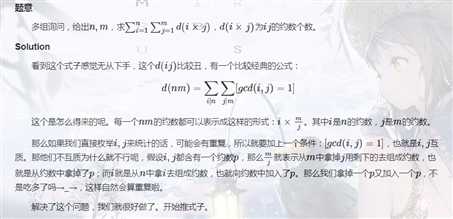 题意
多组询问，给出n, m，求∑_{i=1}^{n}∑_{j=1}^{m} d(i × j)，d(i × j)为ij的约数个数。
Solution
看到这个式子感觉无从下手，这个d(ij)比较丑，有一个比较经典的公式：
d(nm) = ∑_{i|n}∑_{j|m}[gcd(i, j) = 1]
这个是怎么得来的呢。每一个nm的约数都可以表示成这样的形式：i × m/j。其中i是n的约数，j是m的约数。
那么如果我们直接枚举i, j来统计的话，可能会有重复，所以就要加上一个条件：[gcd(i, j) = 1]，也就是i, j互
质。那他们不互质为什么就不行呢，假设i, j都含有一个约数p，那么m/j就表示从m中拿掉j用剩下的去组成约数，也
就是从约数中拿掉了p；而i就是从n中拿i去组成约数，也就向约数中加入了p。那么我们拿掉一个p又加入一个p，不
是吃多了吗→_→，这样自然会算重复啦。
解决了这个问题，我们就很好做了。开始推式子。